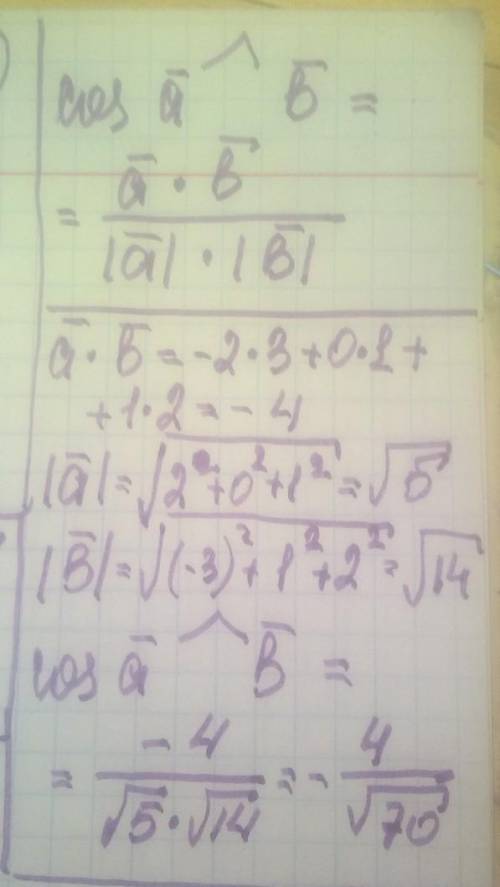 cos a̅ ^ b̅ =
= a̅ · b̅ / |a̅| · |b̅|
a̅ · b̅ = -2·3+0·1+
+1·2 = -4
|a̅| = √(2²+0²+1²) = √5
|b̅| = √((-3)²+1²+2²) = √14
cos a̅ ^ b̅ =
= -4 / √5·√14 = - 4 / √70